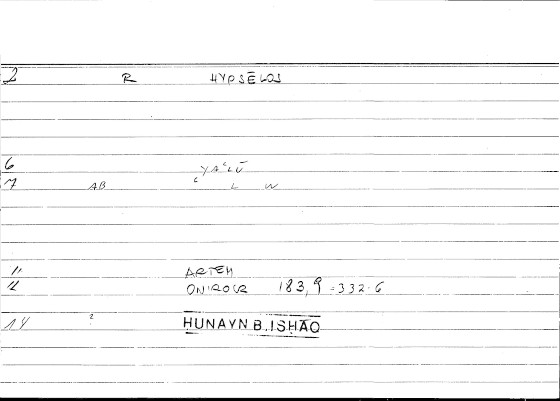 2 R HYPSĒLOS
6 YAʿLŪ
7 AB ʿ L W
11 ARTEM
12 ONIROCR 183,9 = 332.6
14 ? HUNAYN B. ISHAQ